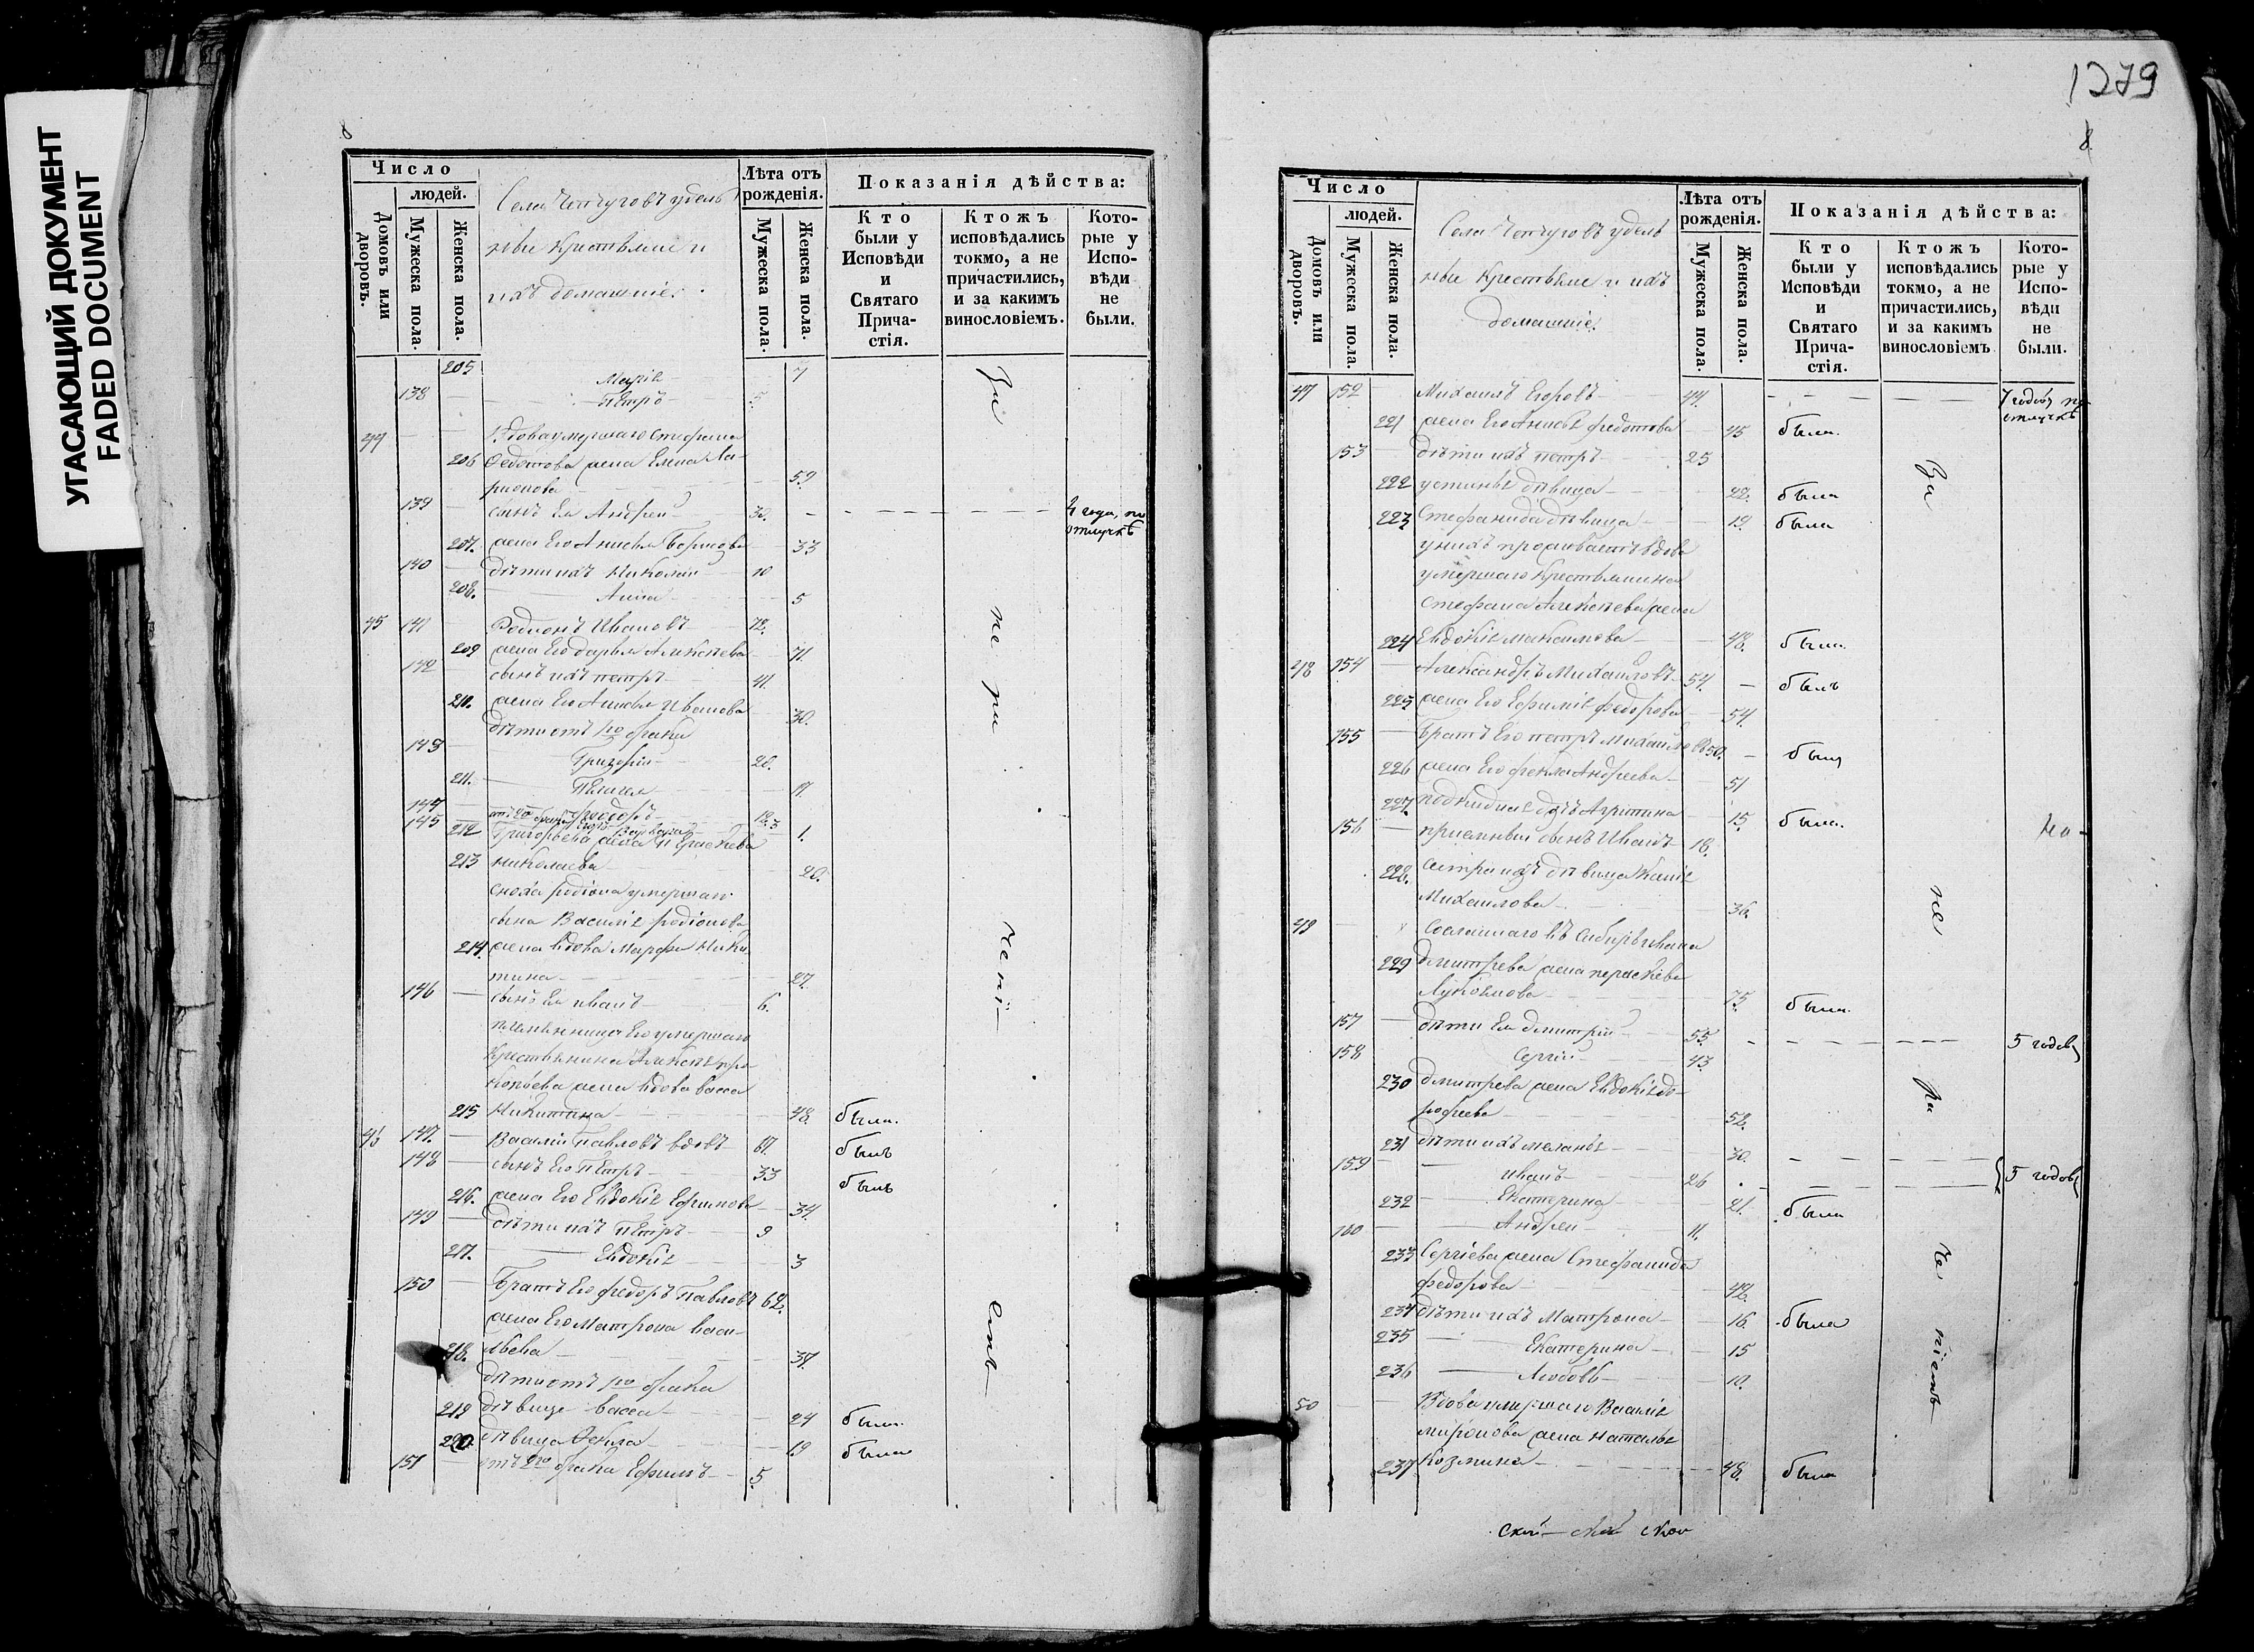 УГАСАЮЩИЙ ДОКУМЕНТ
FADED DOCUMENT
8
Число
людей.
Домовъ или дворовъ.
Мужеска пола.
Женска пола.
удель
ные Крестьяне и
ихъ домашніе.
Лѣта отъ рожденія.
Мужеска пола.
Женска пола.
Показанія дѣйства:
Кто были у Исповѣди и Святаго Причастія.
Ктожъ исповѣдались токмо, а не причастились, и за какимъ винословіемъ.
Которые у Исповѣди не были.
205 Марія 7
138 Петръ 5.
44 Вдова умершаго Стефана
206 Федотова жена Елена Ла-
ріонова 59
139 сынъ Ея Андрей 30. 4 года, по
отлучкѣ
207. жена Его Анисья Борисова 33
140 дѣти ихъ Николай 10
208. Анна 5
45 141 Родіонъ Ивановъ 72.
209 жена Его Дарья Алексѣева 71.
142 сынъ ихъ Петръ 41.
210. жена Его Анисья Иванова 30.
дѣти отъ 1го брака
143 Григорій 20.
211. Пелагея
144 Феодоръ
145
212 Григорьева жена 1.
213 Николаева 20.
сноха Родіона умершаго
сына Василія Родіонова
214 жена вдова Марфа Ники-
тина 27.
146 сынъ Ея Иванъ 6.
племянница Его умершаго
Крестьянина Алексѣя Про
копьева жена вдова Васса
215 Никитина 48. была.
46 147. Василій Павловъ вдовъ 67. былъ
148 сынъ Его Петръ 33 былъ
216. жена Его Евдокія Ефимова 34.
149 дѣти ихъ Петръ 9
217. Евдокія 3
150 Братъ Его Федоръ Павловъ 62.
жена Его Матрона Васи-
218. льева 37.
дѣти отъ 1го брака
219 дѣвица Васса 24 была.
220. дѣвица Фекла 19 была
151 отъ 2го брака Ефимъ 5.
За
не ра
чені
емъ
1279
8.
Число
людей.
Домовъ или дворовъ.
Мужеска пола.
Женска пола.
удель
ные Крестьяне и ихъ
домашніе.
Лѣта отъ рожденія.
Мужеска пола.
Женска пола.
Показанія дѣйства:
Кто были у Исповѣди и Святаго Причастія.
Ктожъ исповѣдались токмо, а не причастились, и за какимъ винословіемъ
Которые у Исповѣди не были.
47 152 Михаилъ Егоровъ 44. 7 годов, по
отлучкѣ
221 жена Его Анисья Федотова 45 была.
153 дѣти ихъ Петръ 25
222 Устинья дѣвица 22. была
223 Стефанида дѣвица 19. была
у нихъ проживаетъ вдова
умершаго Крестьянина
Стефана Алексѣева жена
224 Евдокія Максимова 48. была.
48 154 Александръ Михайловъ 54. былъ
225 жена Его Ефимія Федорова 54.
155 Братъ Его Петръ Михайловъ 50. былъ
226 жена Его Фекла Андреева 51
227. Агрипина 15. была.
156 пріемный сынъ Иванъ 18.
228. сестра ихъ дѣвица
Михайлова 36.
49 Сосланнаго въ Сибирь Ивана
229 Дмитрева жена Параскева
Лукоянова 75. была.
157 дѣти Ея Дмитрій 55. 5 годов
158 Сергій 43.
230 Дмитрева жена Евдокія До-
рофеева 52.
231 дѣти ихъ Меланья 30.
159 Иванъ 26 5 годов
232 Екатерина 21. была
160 Андрей 11.
233 Сергіева жена Стефанида
Федорова 42.
234 дѣти ихъ Матрона 16. была
235 Екатерина 15
236 Любовь 10.
50 Вдова умершаго Василія
Миронова жена Наталья
237 Козмина 48. была
За
не
ра
че
ніемъ